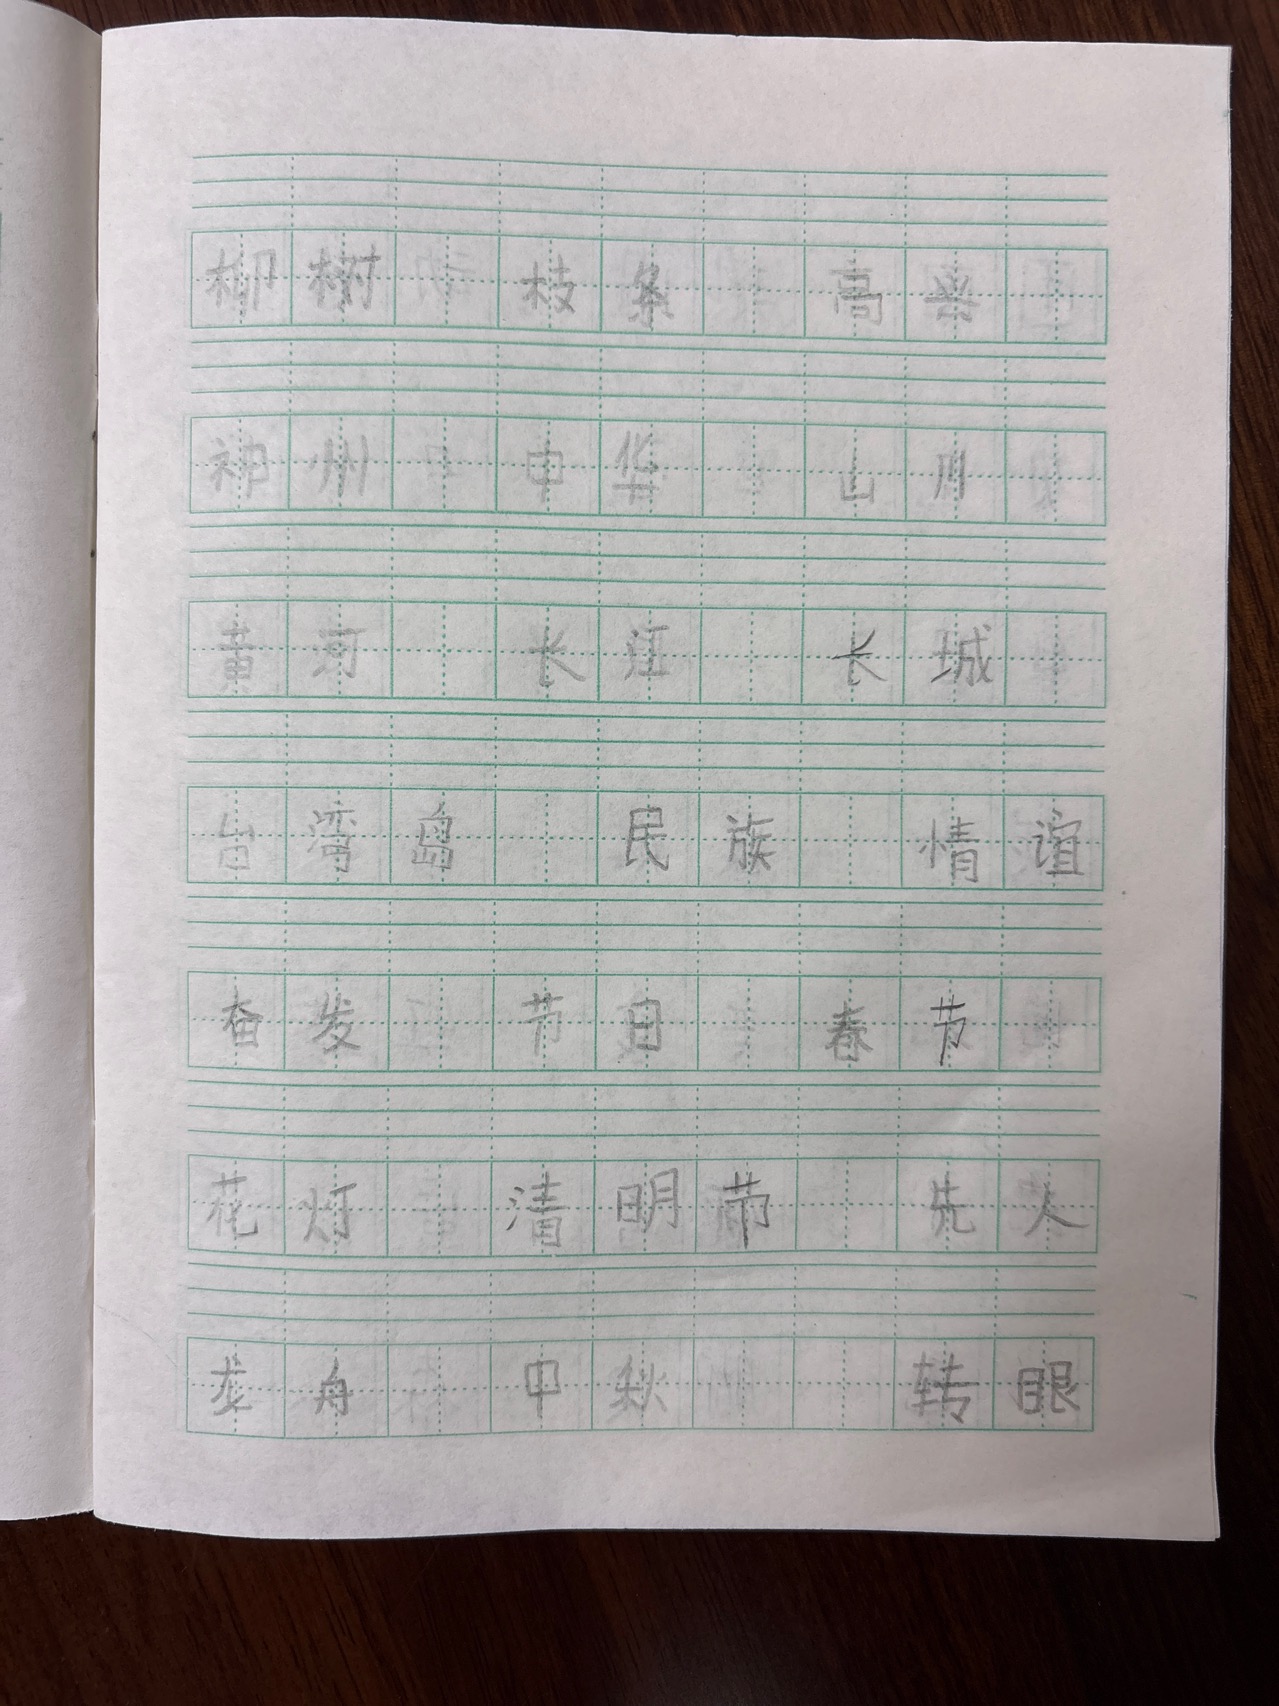 柳树 枝条 高兴
神州 中华 山川
黄河 长江 长城
台湾岛 民族 情谊
奋发 节目 春节
花灯 清明节 先人
龙舟 中秋 转眼